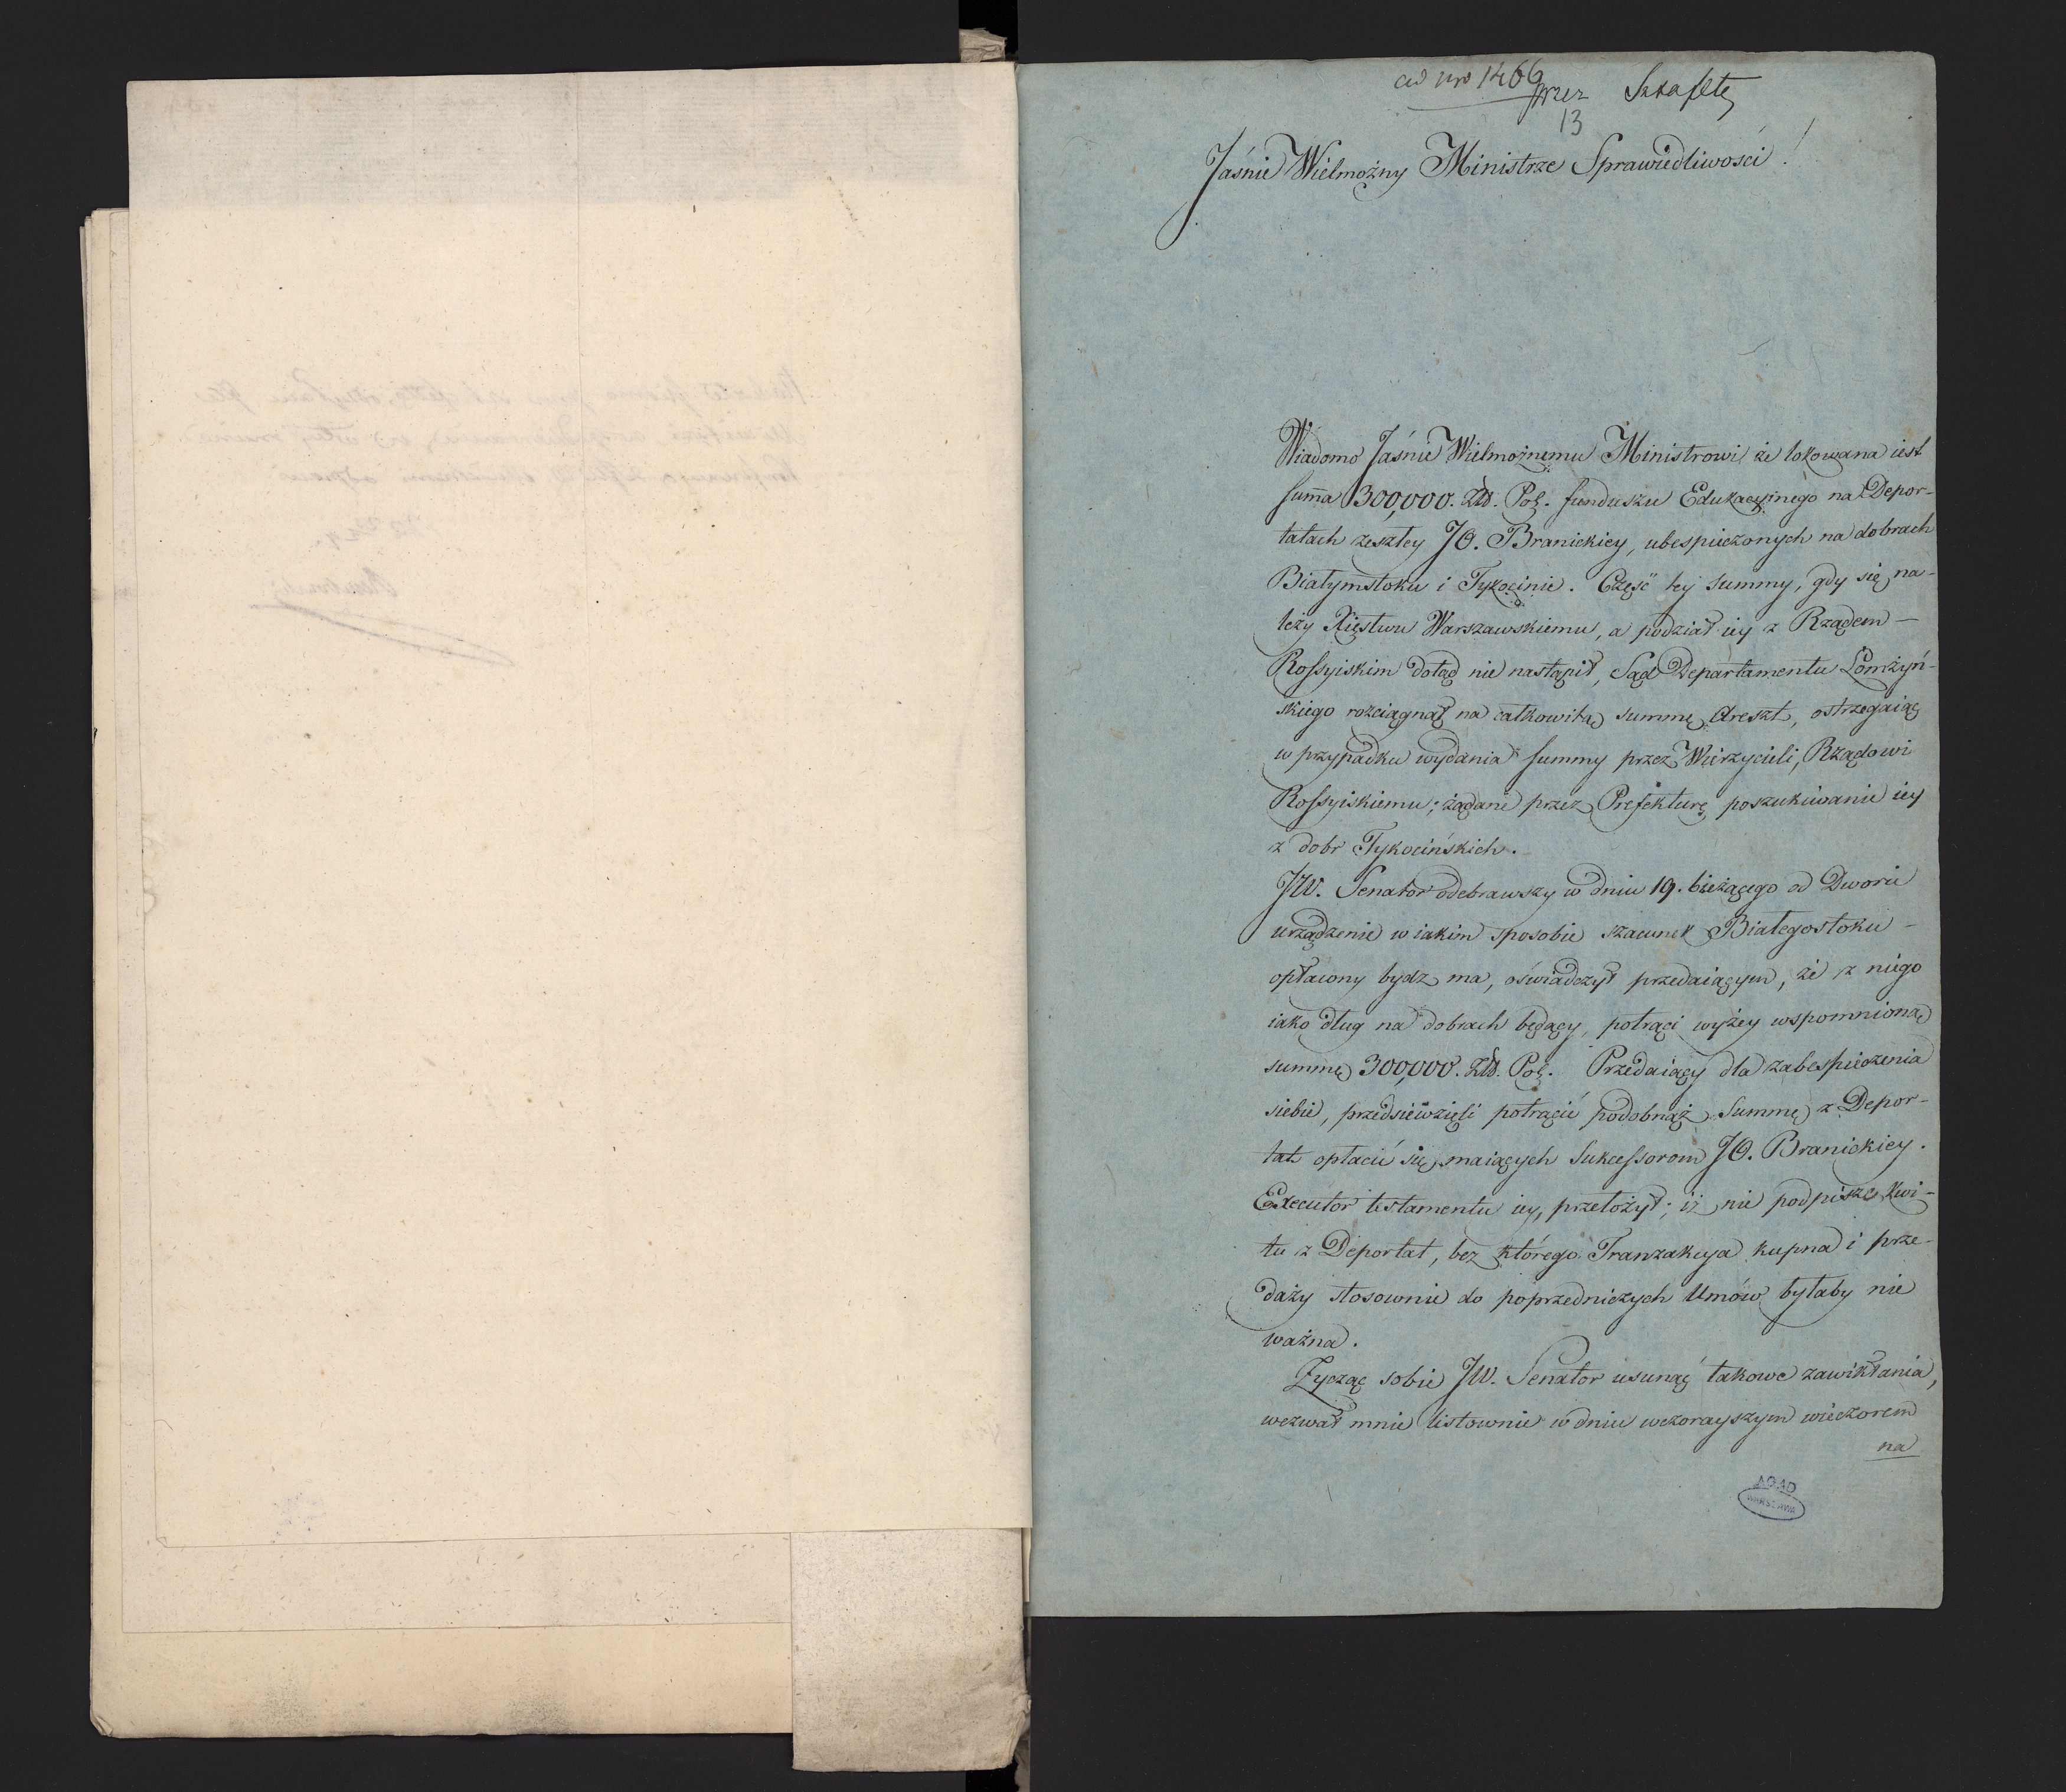 ad nro 1466
przez Sztafetę
13
Jaśnie Wielmożny Ministrze Sprawiedliwości!
Wiadomo Jaśnie Wielmożnemu Ministrowi że lokowana iest
summa 300,000. Złł. Pol. funduszu Edukacyinego na Depor-
tatach zeszłey JO. Branickiey, ubespieczonych na dobrach
Białymstoku i Tykocinie. Część tej summy, gdy się na-
leży Xięstwu Warszawskiemu, a podział iey z Rządem —
Rossyiskim dotąd nie nastąpił, Sąd Departamentu Łomżyń-
skiego rozciągnął na całkowitą summę Areszt, ostrzegaiąc
w przypadku wydania summy przez Wierzycieli, Rządowi
Rossyiskiemu; żądane przez Prefekturę poszukiwanie iey
z dobr Tykocińskich.
JW. Senator odebrawszy w dniu 19. bieżącego od Dworu
urządzenie w iakim sposobie szacunek Białegostoku -
opłacony bydz ma, oświadczył przedaiącym, że z niego
iako dług na dobrach będący, potrąci wyżey wspomnioną
summę 300,000. Złł. Pol. Przedaiący dla zabespieczenia
siebie, przedsiewzięli potrącić podobnąż Summę z Depor-
tat opłacić się maiących Sukcessorom JO. Branickiey.
Executor testamentu iey, przełożył; iż nie podpisze kwi-
tu z Deportat, bez którego Tranzakcya kupna i prze-
daży stosownie do poprzedniczych Umów byłaby nie
ważna.
Zycząc sobie JW. Senator usunąć takowe zawikłania,
wezwał mnie listownie w dniu wczorayszym wieczorem
na
AGAD
WARSZAWA